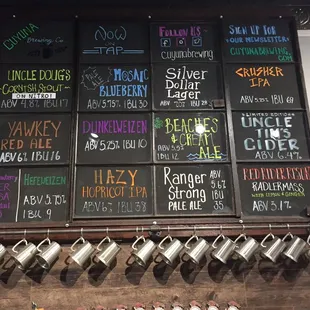 Cuyuna
Brewing Co.
Now
on
TAP
Follow Us
Cuyunabrewing
Sign Up For
Your Newsletter
Cuyunabrewing.com
Uncle Doug's
Cornish Stout
ON NITRO!
ABV 4.8% IBU 17
The Mosaic
Blueberry
ABV 5.75% IBU 30
Silver
Dollar
Lager
Crusher
IPA
Yawkey
Red Ale
ABV 6% IBU 16
Dunkelweizen
ABV 5.25% IBU 10
Beaches
& Cream
Ale
Limited Edition
Uncle
Tim's
Cider
ABV 6.4%
Hefeweizen
ABV 5.25%
IBU 9
Hazy
Hopricot IPA
Ranger
Strong
Pale Ale
ABV
5.65%
IBU
Radlermass
ABV 3.1%